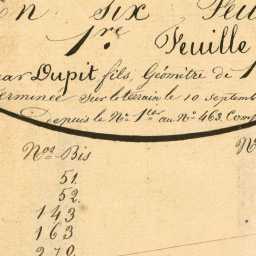 En Six Feu
1re Feuille
par Dupit fils, Géomètre de 1
Terminée Sur le terrain le 10 septemb
Depuis le No 1er au No 463. Com
Nos Bis
N
51.
52.
143
163
270.